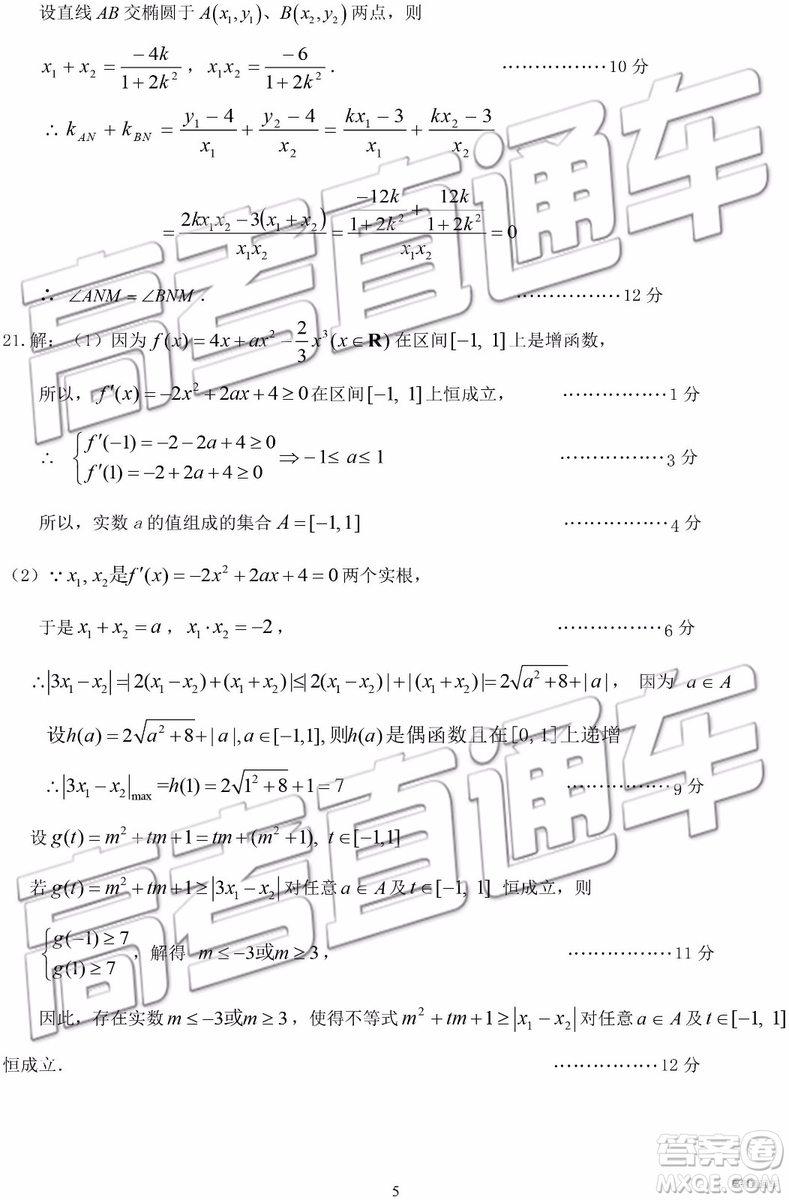 设直线 AB 交椭圆于 A(x₁,y₁)、B(x₂,y₂) 两点，则
x₁ + x₂ = -4k/(1+2k²)，x₁x₂ = -6/(1+2k²)． ················10 分
∴ k_AN + k_BN = (y₁-4)/x₁ + (y₂-4)/x₂ = (kx₁-3)/x₁ + (kx₂-3)/x₂
= (2kx₁x₂-3(x₁+x₂))/(x₁x₂) = (-12k/(1+2k²) + 12k/(1+2k²))/(x₁x₂) = 0
∴ ∠ANM = ∠BNM． ················12 分
21.解：（1）因为 f(x) = 4x + ax² - (2/3)x³ (x∈R) 在区间[-1, 1]上是增函数，
所以，f′(x) = -2x² + 2ax + 4 ≥ 0 在区间[-1, 1]上恒成立， ················1 分
∴ { f′(-1) = -2-2a+4 ≥ 0
f′(1) = -2+2a+4 ≥ 0 ⇒ -1 ≤ a ≤ 1 ················3 分
所以，实数 a 的值组成的集合 A = [-1,1] ················4 分
（2）∵ x₁, x₂是f′(x) = -2x² + 2ax + 4 = 0 两个实根，
于是 x₁ + x₂ = a，x₁·x₂ = -2， ················6 分
∴|3x₁-x₂|=|2(x₁-x₂)+(x₁+x₂)|≤|2(x₁-x₂)|+|(x₁+x₂)|=2√(a²+8)+|a|， 因为 a∈A
设h(a) = 2√(a²+8)+|a|,a∈[-1,1],则h(a)是偶函数且在[0,1]上递增
∴|3x₁-x₂|max =h(1) = 2√(1²+8)+1 = 7 ················9 分
设 g(t) = m²+tm+1 = tm+(m²+1), t∈[-1,1]
若 g(t) = m²+tm+1 ≥ |3x₁-x₂| 对任意 a∈A 及 t∈[-1, 1] 恒成立，则
{ g(-1) ≥ 7
g(1) ≥ 7 ，解得 m ≤ -3或m ≥ 3， ················11 分
因此，存在实数 m ≤ -3或m ≥ 3，使得不等式 m²+tm+1 ≥ |x₁-x₂| 对任意 a∈A 及 t∈[-1, 1]
恒成立． ················12 分
5
高考直通车
高考直通车
答案卷